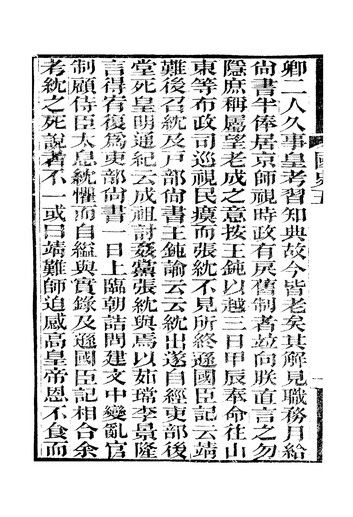 卿二人久事皇考習知典故今皆老矣其解見職務月給
尚書半俸居京師視時政有戾舊制者並向朕直言之勿
隱庶稱屬望老成之意按王鈍以越三日甲辰奉命往山
東等布政司巡視民瘼而張紞不見所終遜國臣記云靖
難後召紞及戶部尚書王鈍諭云云紞出遂自經吏部後
堂死皇明通紀云成祖討姦黨張紞與焉以茹瑺李景隆
言得宥復爲吏部尚書一日上臨朝詰問建文中變亂官
制顧侍臣太息紞懼而自縊與實錄及遜國臣記相合余
考紞之死說者不一或曰靖難師迫感高皇帝恩不食而
國史五
一